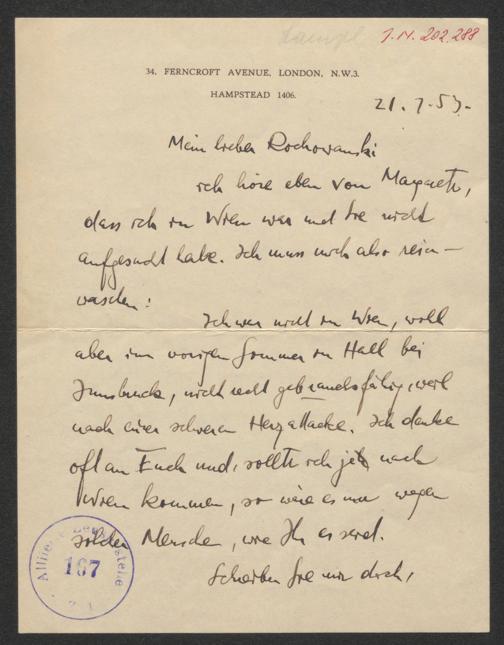 I.N. 202.288
34, FERNCROFT AVENUE, LONDON, N.W.3.
HAMPSTEAD 1406.
21.7.53.
Mein lieber Rochowanski
ich höre eben von Margarete,
dass ich in Wien war und Sie nicht
aufgesucht habe. Ich muss mich also rein-
waschen:
Ich war nicht in Wien, wohl
aber im vorigen Sommer in Hall bei
Innsbruck, nicht recht gebrauchsfähig, weil
nach einer schweren Herzattacke. Ich denke
oft an Euch und, sollte ich je nach
Wien kommen, so wäre es nur wegen
solcher Menschen, wie Ihr es seid.
Schreiben Sie mir doch,
Alliierte Zensurstelle
167